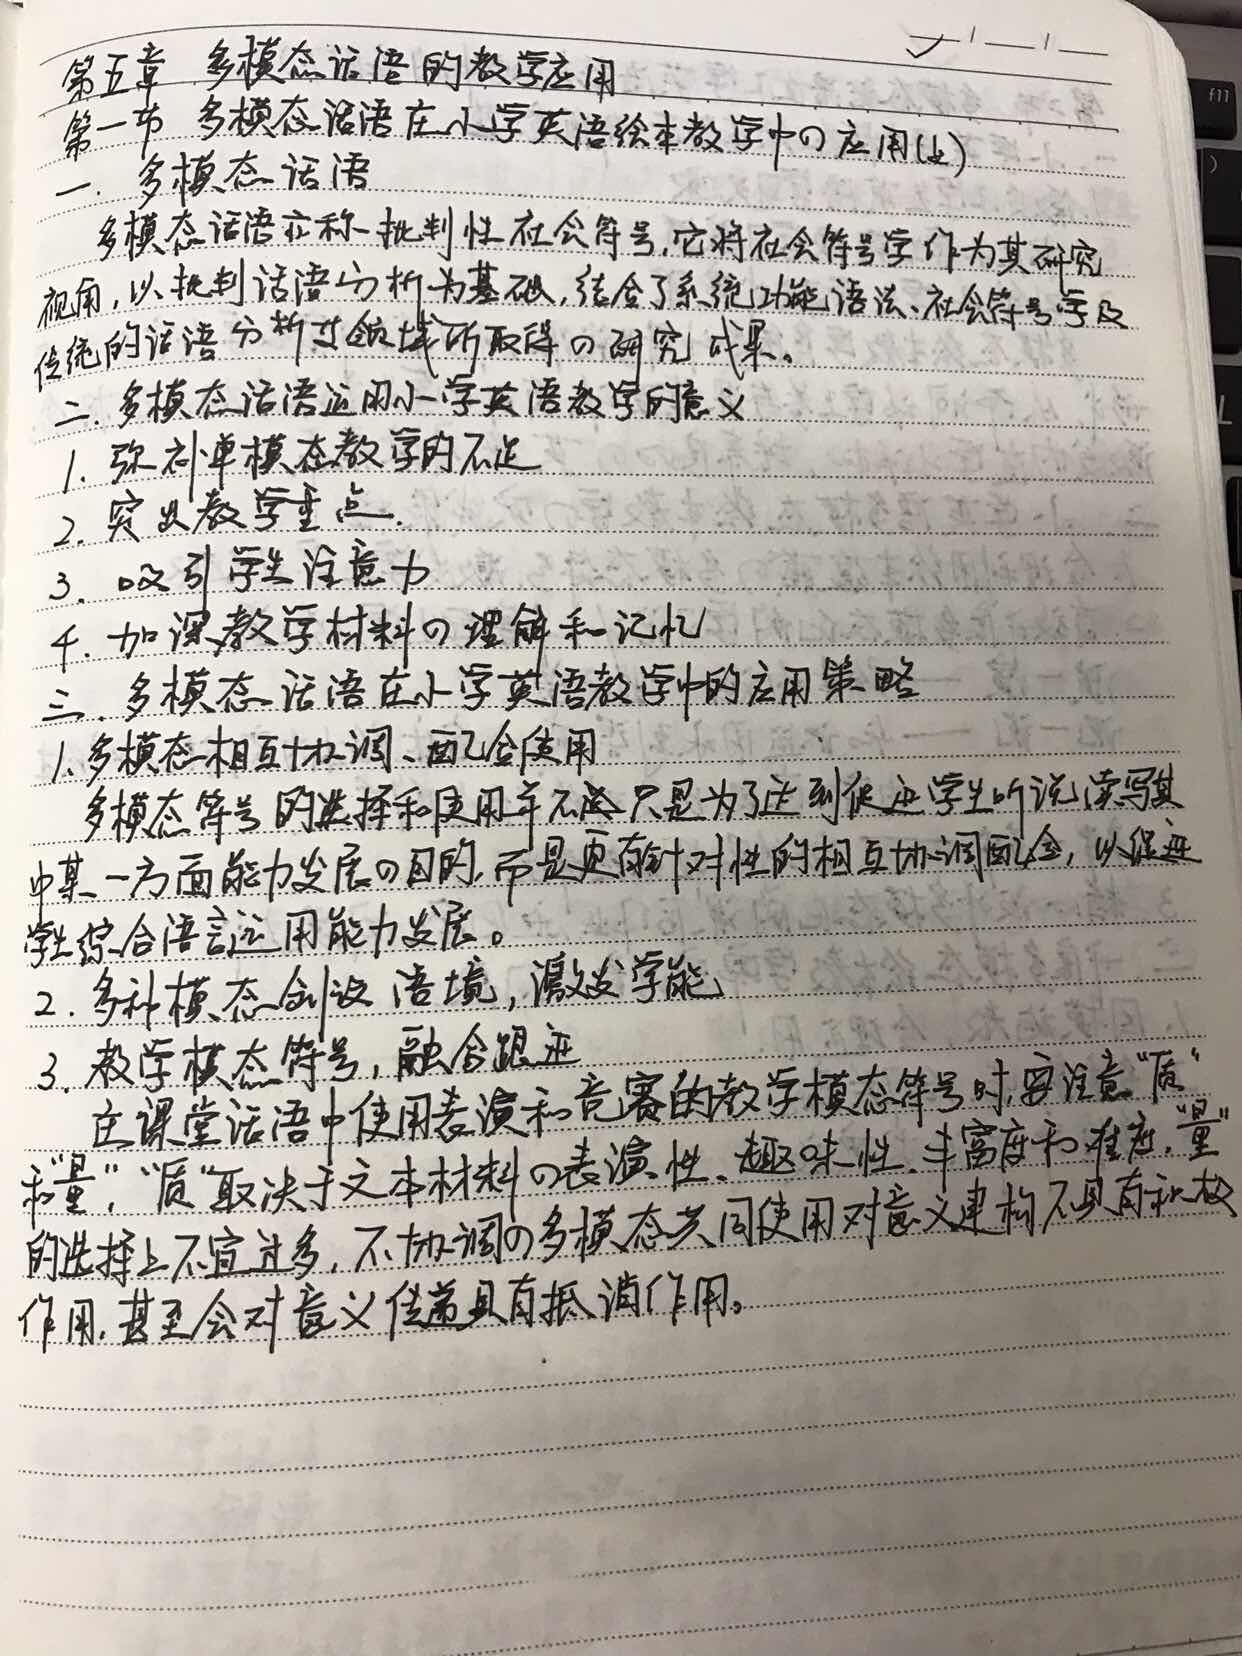 第五章 多模态话语的教学应用
第一节 多模态话语在小学英语绘本教学中の应用(上)
一. 多模态话语
多模态话语亦称批判性社会符号,它将社会符号学作为其研究
视角,以批判话语分析为基础,结合了系统功能语法、社会符号学及
传统的话语分析等领域所取得の研究成果。
二. 多模态话语运用小学英语教学的意义
1. 弥补单模态教学的不足
2. 突出教学重点.
3. 吸引学生注意力
4. 加深教学材料の理解和记忆
三. 多模态话语在小学英语教学中的应用策略
1. 多模态相互协调、配合使用
多模态符号的选择和使用并不只是为了达到促进学生听说读写其
中某一方面能力发展の目的,而是更有针对性的相互协调配合,以促进
学生综合语言运用能力发展。
2. 多种模态创设语境,激发学能
3. 教学模态符号,融合跟进
在课堂话语中使用表演和竞赛的教学模态符号时,要注意“质”
和“量”,“质”取决于文本材料の表演性、趣味性、丰富度和难度,“量”
的选择上不宜过多,不协调の多模态共同使用对意义建构不具有积极
作用,甚至会对意义传递具有抵消作用。
f11
L